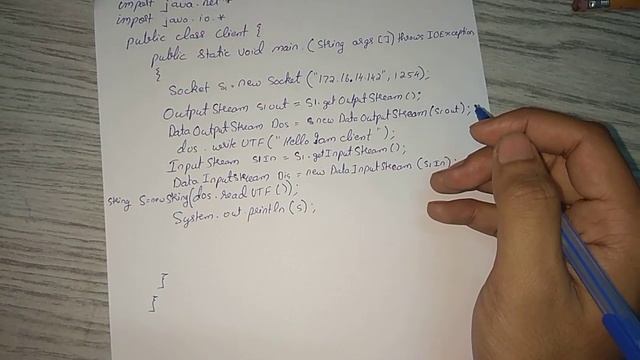 import java.net *
import java.io.*
public class Client {
public static void main. (String args []) throws IOException
{
Socket S1 = new Socket ("172.16.14.142", 1254);
OutputStream S1out = S1.getOutputStream ();
Data OutputStream Dos = new Data OutputStream (S1out);
dos. write UTF ("Hello Iam client");
Input Stream S1In = S1.getInputStream ();
Data InputStream Dis = new Data InputStream (S1In);
String S=new String(dos.read UTF ());
System.out.println (s);
}
}